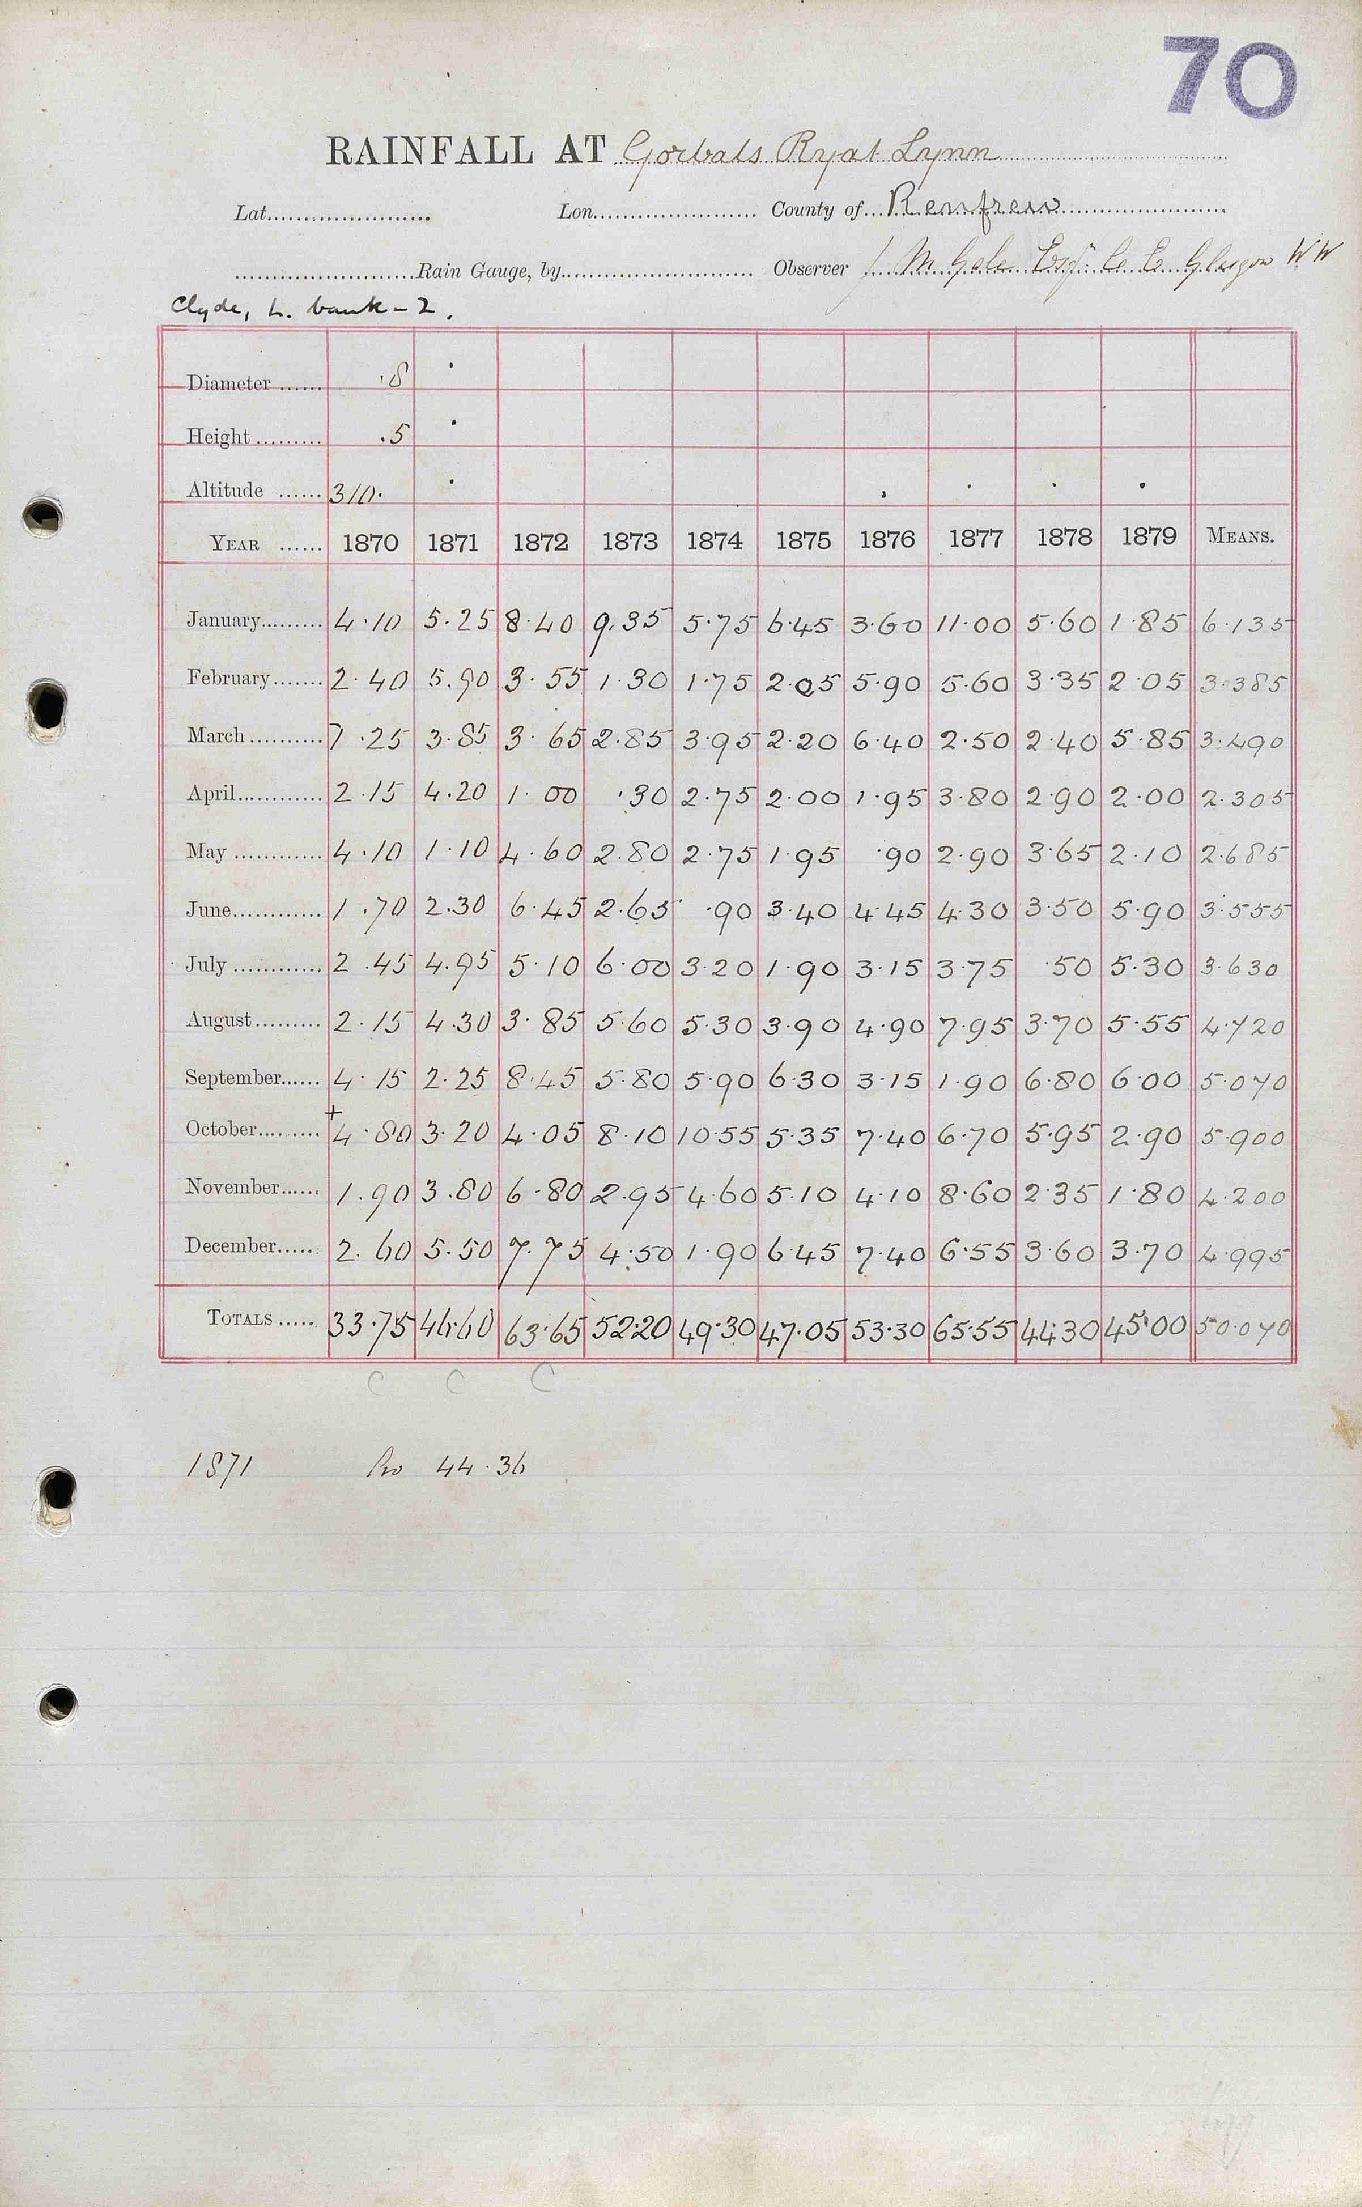 70
RAINFALL AT Gorbals Ryat Lynn
Lat. Lon. County of Renfrew
Rain Gauge, by Observer J. M. Gale Esq. C. E. Glasgow W W
Clyde, L. bank - 2.
Diameter ...... ·8
Height ......... .5
Altitude ...... 310.
YEAR ...... 1870 1871 1872 1873 1874 1875 1876 1877 1878 1879 MEANS.
January......... 4·10 5·25 8·40 9.35 5·75 6·45 3·60 11·00 5·60 1·85 6·135
February....... 2·40 5.90 3·55 1·30 1·75 2·05 5·90 5·60 3·35 2·05 3·385
March.......... 7·25 3·85 3·65 2·85 3·95 2·20 6·40 2·50 2·40 5·85 3·490
April............ 2·15 4·20 1·00 ·30 2·75 2·00 1·95 3·80 2·90 2·00 2·305
May ............ 4·10 1·10 4·60 2·80 2·75 1·95 ·90 2·90 3·65 2·10 2·685
June............ 1·70 2·30 6·45 2·65 ·90 3·40 4·45 4·30 3·50 5·90 3·555
July ............ 2·45 4·95 5·10 6·00 3·20 1·90 3·15 3·75 ·50 5·30 3·630
August......... 2·15 4·30 3·85 5·60 5·30 3·90 4·90 7·95 3·70 5·55 4·720
September...... 4·15 2·25 8·45 5·80 5·90 6·30 3·15 1·90 6·80 6·00 5·070
October......... +4·80 3·20 4·05 8·10 10·55 5·35 7·40 6·70 5·95 2·90 5·900
November...... 1·90 3·80 6·80 2·95 4·60 5·10 4·10 8·60 2·35 1·80 4·200
December..... 2·60 5·50 7·75 4·50 1·90 6·45 7·40 6·55 3·60 3·70 4·995
TOTALS ..... 33·75 46·60 63·65 52·20 49·30 47·05 53·30 65·55 44·30 45·00 50·070
C C C
1871 44·36